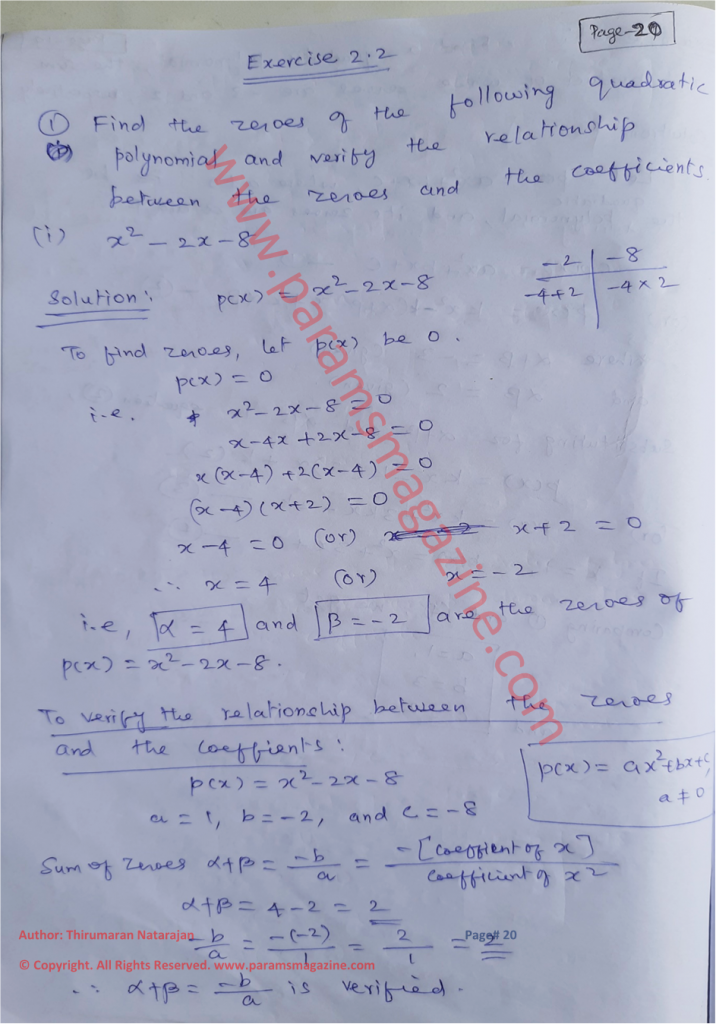 Page-20
Exercise 2.2
① Find the zeroes of the following quadratic
polynomial and verify the relationship
between the zeroes and the coefficients.
(i) x² - 2x - 8
-2 | -8
-4+2 | -4 × 2
Solution: p(x) = x² - 2x - 8
To find zeroes, let p(x) be 0.
p(x) = 0
i.e. x² - 2x - 8 = 0
x - 4x + 2x - 8 = 0
x(x-4) + 2(x-4) = 0
(x-4)(x+2) = 0
x - 4 = 0 (or) x + 2 = 0
∴ x = 4 (or) x = -2
i.e, α = 4 and β = -2 are the zeroes of
p(x) = x² - 2x - 8.
To verify the relationship between the zeroes
and the coeffients:
p(x) = ax² + bx + c,
a ≠ 0
p(x) = x² - 2x - 8
a = 1, b = -2, and c = -8
Sum of zeroes α+β = -b/a = -[coeffient of x]/coefficient of x²
α+β = 4 - 2 = 2
-b/a = -(-2)/1 = 2/1 = 2
∴ α+β = -b/a is verified.
www.paramsmagazine.com
Author: Thirumaran Natarajan
Page# 20
© Copyright. All Rights Reserved. www.paramsmagazine.com